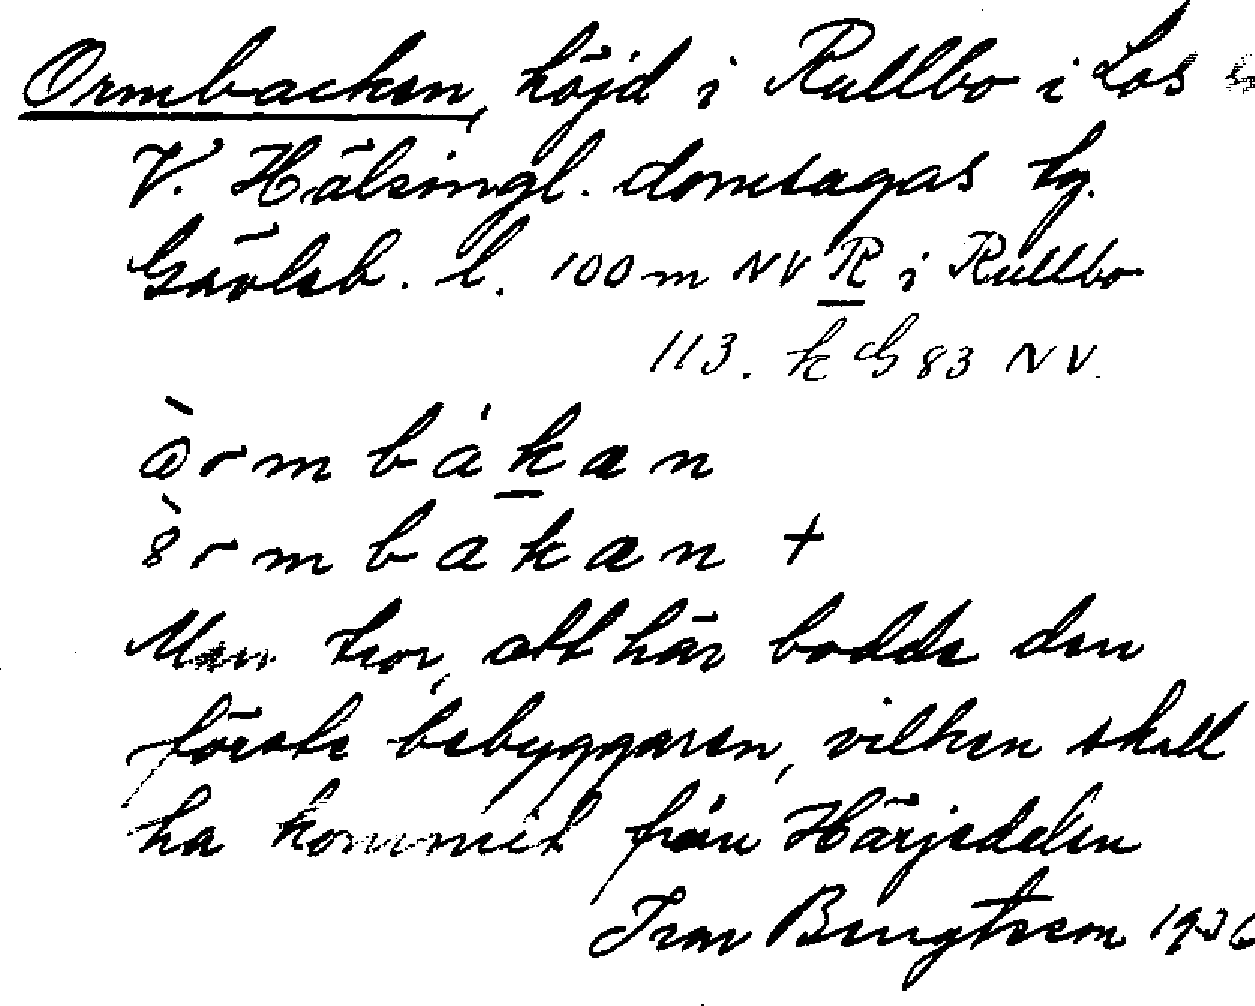 Ormbacken, höjd i Rullbo i Los sn
V. Hälsingl. domsagas tg.
Gävleb. l. 100 m NV R i Rullbo
113. k G 83 NV.
òrmbákan
òrmbakan +
Man tror, att här bodde den
förste bebyggaren, vilken skall
ha kommit från Härjedalen
Ivar Bengtsson